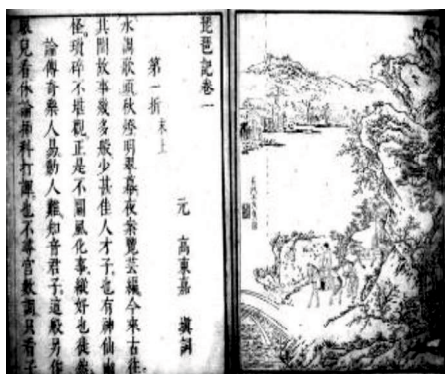 琵琶記卷一
元 高東嘉 塡詞
第一折 末上
水調歌頭秋燈明翠幕夜案覽芸編今來古往
其間故事幾多般少甚佳人才子也有神仙幽
怪瑣碎不堪觀正是不關風化事縱好也徒然
論傳奇樂人易動人難知音君子這般另作
眼兒看休論插科打諢也不尋宮數調只看子